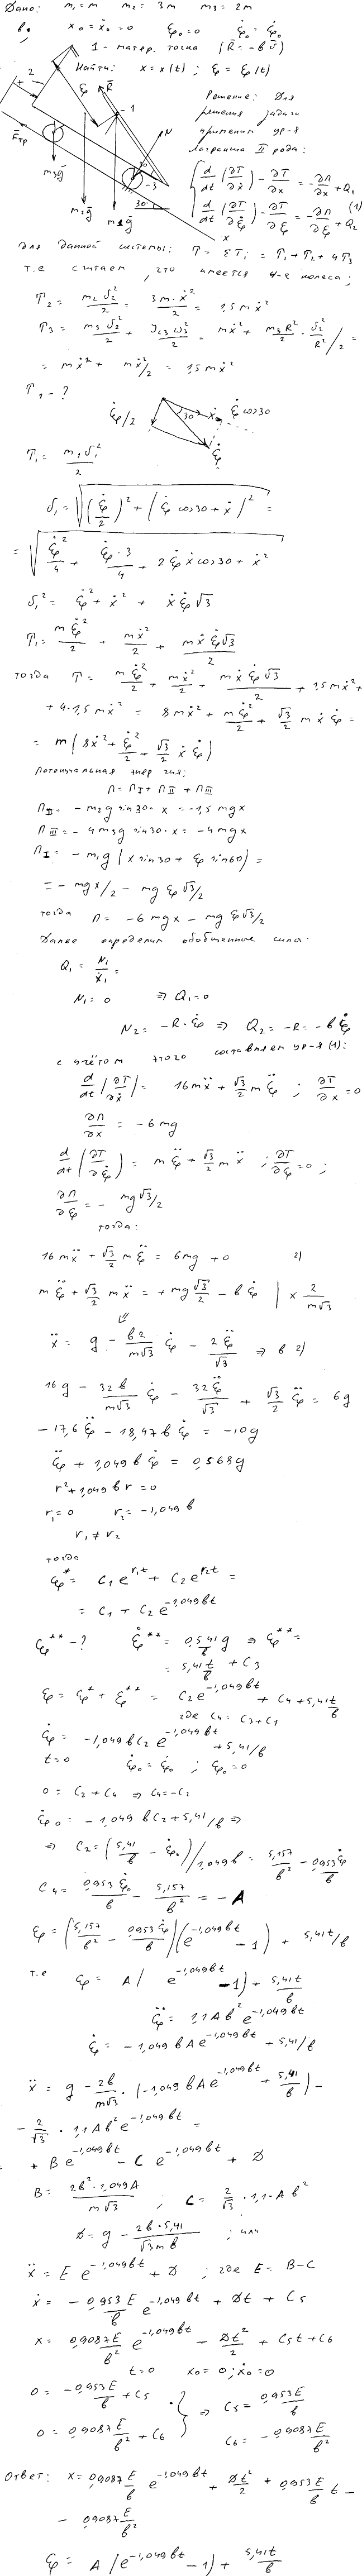 Дано: m₁ = m   m₂ = 3m   m₃ = 2m
b,   x₀ = ẋ₀ = 0   ξ₀ = 0   ξ̇₀ = ξ̇₀
1 - матер. точка (R̄ = -b ῡ)
Найти: x = x(t) ; ξ = ξ(t)
2
ξ
R̄
1
Решение: Для
решения задачи
применим ур-я
Лагранжа II рода:
F̄тр
N
3
30°
m₃ḡ
m₂ḡ
m₁ḡ
x
d/dt (∂T/∂ẋ) - ∂T/∂x = -∂П/∂x + Q₁
d/dt (∂T/∂ξ̇) - ∂T/∂ξ = -∂П/∂ξ + Q₂   (1)
для данной системы: T = ΣTᵢ = T₁ + T₂ + 4T₃
т.е считаем, что имеется 4-е колеса;
T₂ = m₂ υ₂²/2 = 3m·ẋ²/2 = 1,5 mẋ²
T₃ = m₃ υ₂²/2 + J_C3 ω₃²/2 = mẋ² + m₃R²/2 · υ₂²/R² /2 =
= mẋ² + mẋ²/2 = 1,5 mẋ²
T₁ - ?
ξ̇/2   30°   ẋ   ξ̇ cos30
ξ̇
T₁ = m₁υ₁²/2
υ₁ = √((ξ̇/2)² + (ξ̇ cos30 + ẋ)²) =
= √(ξ̇²/4 + ξ̇²·3/4 + 2ξ̇ẋ cos30 + ẋ²)
υ₁² = ξ̇² + ẋ² + ẋξ̇√3
T₁ = mξ̇²/2 + mẋ²/2 + mẋξ̇√3/2
тогда T = mξ̇²/2 + mẋ²/2 + mẋξ̇√3/2 + 1,5mẋ² +
+ 4·1,5mẋ² = 8mẋ² + mξ̇²/2 + √3/2 mẋξ̇ =
= m(8ẋ² + ξ̇²/2 + √3/2 ẋξ̇)
Потенциальная энергия:
П = П_I + П_II + П_III
П_II = -m₂g sin30·x = -1,5 mgx
П_III = -4m₃g sin30·x = -4mgx
П_I = -m₁g(x sin30 + ξ sin60) =
= -mgx/2 - mgξ√3/2
тогда П = -6mgx - mgξ√3/2
Далее определим обобщенные силы:
Q₁ = N₁/ẋ₁ =
N₁ = 0   ⇒ Q₁ = 0
N₂ = -R·ξ̇ ⇒ Q₂ = -R = -bξ̇
с учётом этого составляем ур-я (1):
d/dt (∂T/∂ẋ) = 16mẍ + √3/2 mξ̈ ; ∂T/∂x = 0
∂П/∂x = -6mg
d/dt (∂T/∂ξ̇) = mξ̈ + √3/2 mẍ ; ∂T/∂ξ = 0;
∂П/∂ξ = -mg√3/2
тогда:
16mẍ + √3/2 mξ̈ = 6mg + 0   2)
mξ̈ + √3/2 mẍ = +mg√3/2 - bξ̇ | × 2/m√3
⇓
ẍ = g - b2/m√3 ξ̇ - 2ξ̈/√3 ⇒ в 2)
16g - 32b/m√3 ξ̇ - 32ξ̈/√3 + √3/2 ξ̈ = 6g
-17,6ξ̈ - 18,47bξ̇ = -10g
ξ̈ + 1,049bξ̇ = 0,568g
r² + 1,049br = 0
r₁ = 0   r₂ = -1,049b
r₁ ≠ r₂
тогда
ξ* = C₁e^{r₁t} + C₂e^{r₂t} =
= C₁ + C₂e^{-1,049bt}
ξ** - ?   ξ̇** = 0,541g/b ⇒ ξ** =
= 5,41t/b + C₃
ξ = ξ* + ξ** = C₂e^{-1,049bt} + C₄ + 5,41t/b
где C₄ = C₃ + C₁
ξ̇ = -1,049bC₂e^{-1,049bt} + 5,41/b
t = 0   ξ̇₀ = ξ̇₀ ; ξ₀ = 0
0 = C₂ + C₄ ⇒ C₄ = -C₂
ξ̇₀ = -1,049bC₂ + 5,41/b ⇒
⇒ C₂ = (5,41/b - ξ̇₀)/1,049b = 5,157/b² - 0,953ξ̇/b
C₄ = 0,953ξ̇₀/b - 5,157/b² = -A
ξ = (5,157/b² - 0,953ξ̇/b)(e^{-1,049bt} - 1) + 5,41t/b
т.е ξ = A(e^{-1,049bt} - 1) + 5,41t/b
ξ̈ = 1,1Ab²e^{-1,049bt}
ξ̇ = -1,049bAe^{-1,049bt} + 5,41/b
ẍ = g - 2b/m√3 · (-1,049bAe^{-1,049bt} + 5,41/b) -
- 2/√3 · 1,1Ab²e^{-1,049bt} =
+ Be^{-1,049bt} - Ce^{-1,049bt} + D
B = 2b²·1,049A/m√3 ; C = 2/√3 · 1,1·Ab²
D = g - 2b·5,41/√3mb ; или
ẍ = Ee^{-1,049bt} + D ; где E = B - C
ẋ = -0,953E/b e^{-1,049bt} + Dt + C₅
x = 0,9087E/b² e^{-1,049bt} + Dt²/2 + C₅t + C₆
t = 0   x₀ = 0; ẋ₀ = 0
0 = -0,953E/b + C₅   ⇒ C₅ = 0,953E/b
0 = 0,9087E/b² + C₆   C₆ = -0,9087E/b²
Ответ: x = 0,9087E/b² e^{-1,049bt} + Dt²/2 + 0,953E/b t -
- 0,9087E/b²
ξ = A(e^{-1,049bt} - 1) + 5,41t/b